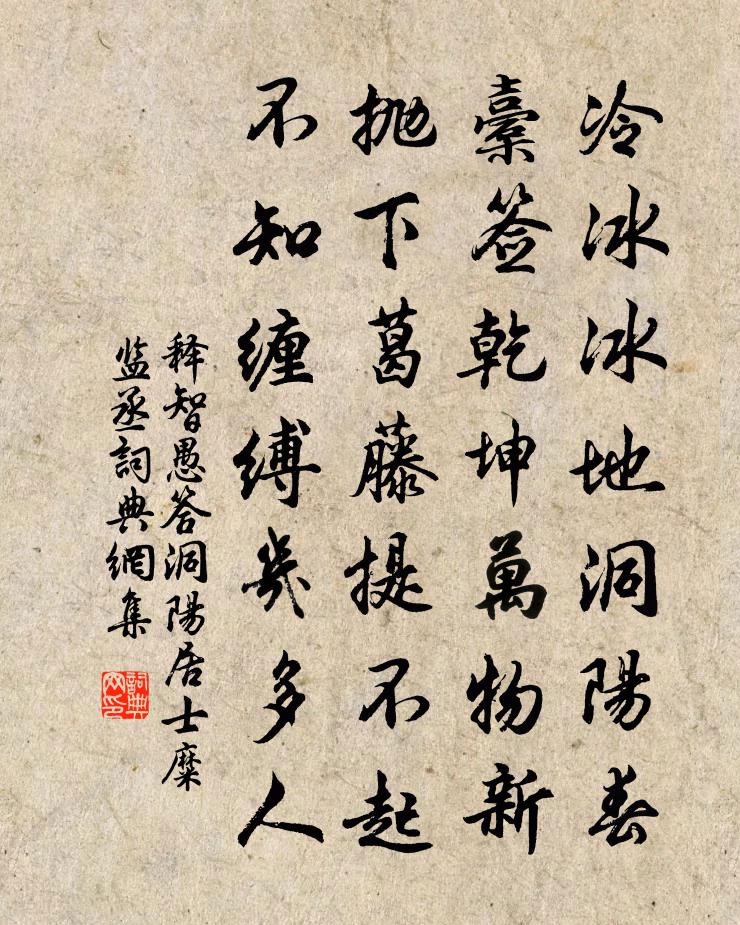 冷冰冰地洞陽春
橐签乾坤萬物新
抛下葛藤提不起
不知纏縛幾多人
释智愚答洞陽居士糜
监丞詞典網集
詞典
网印